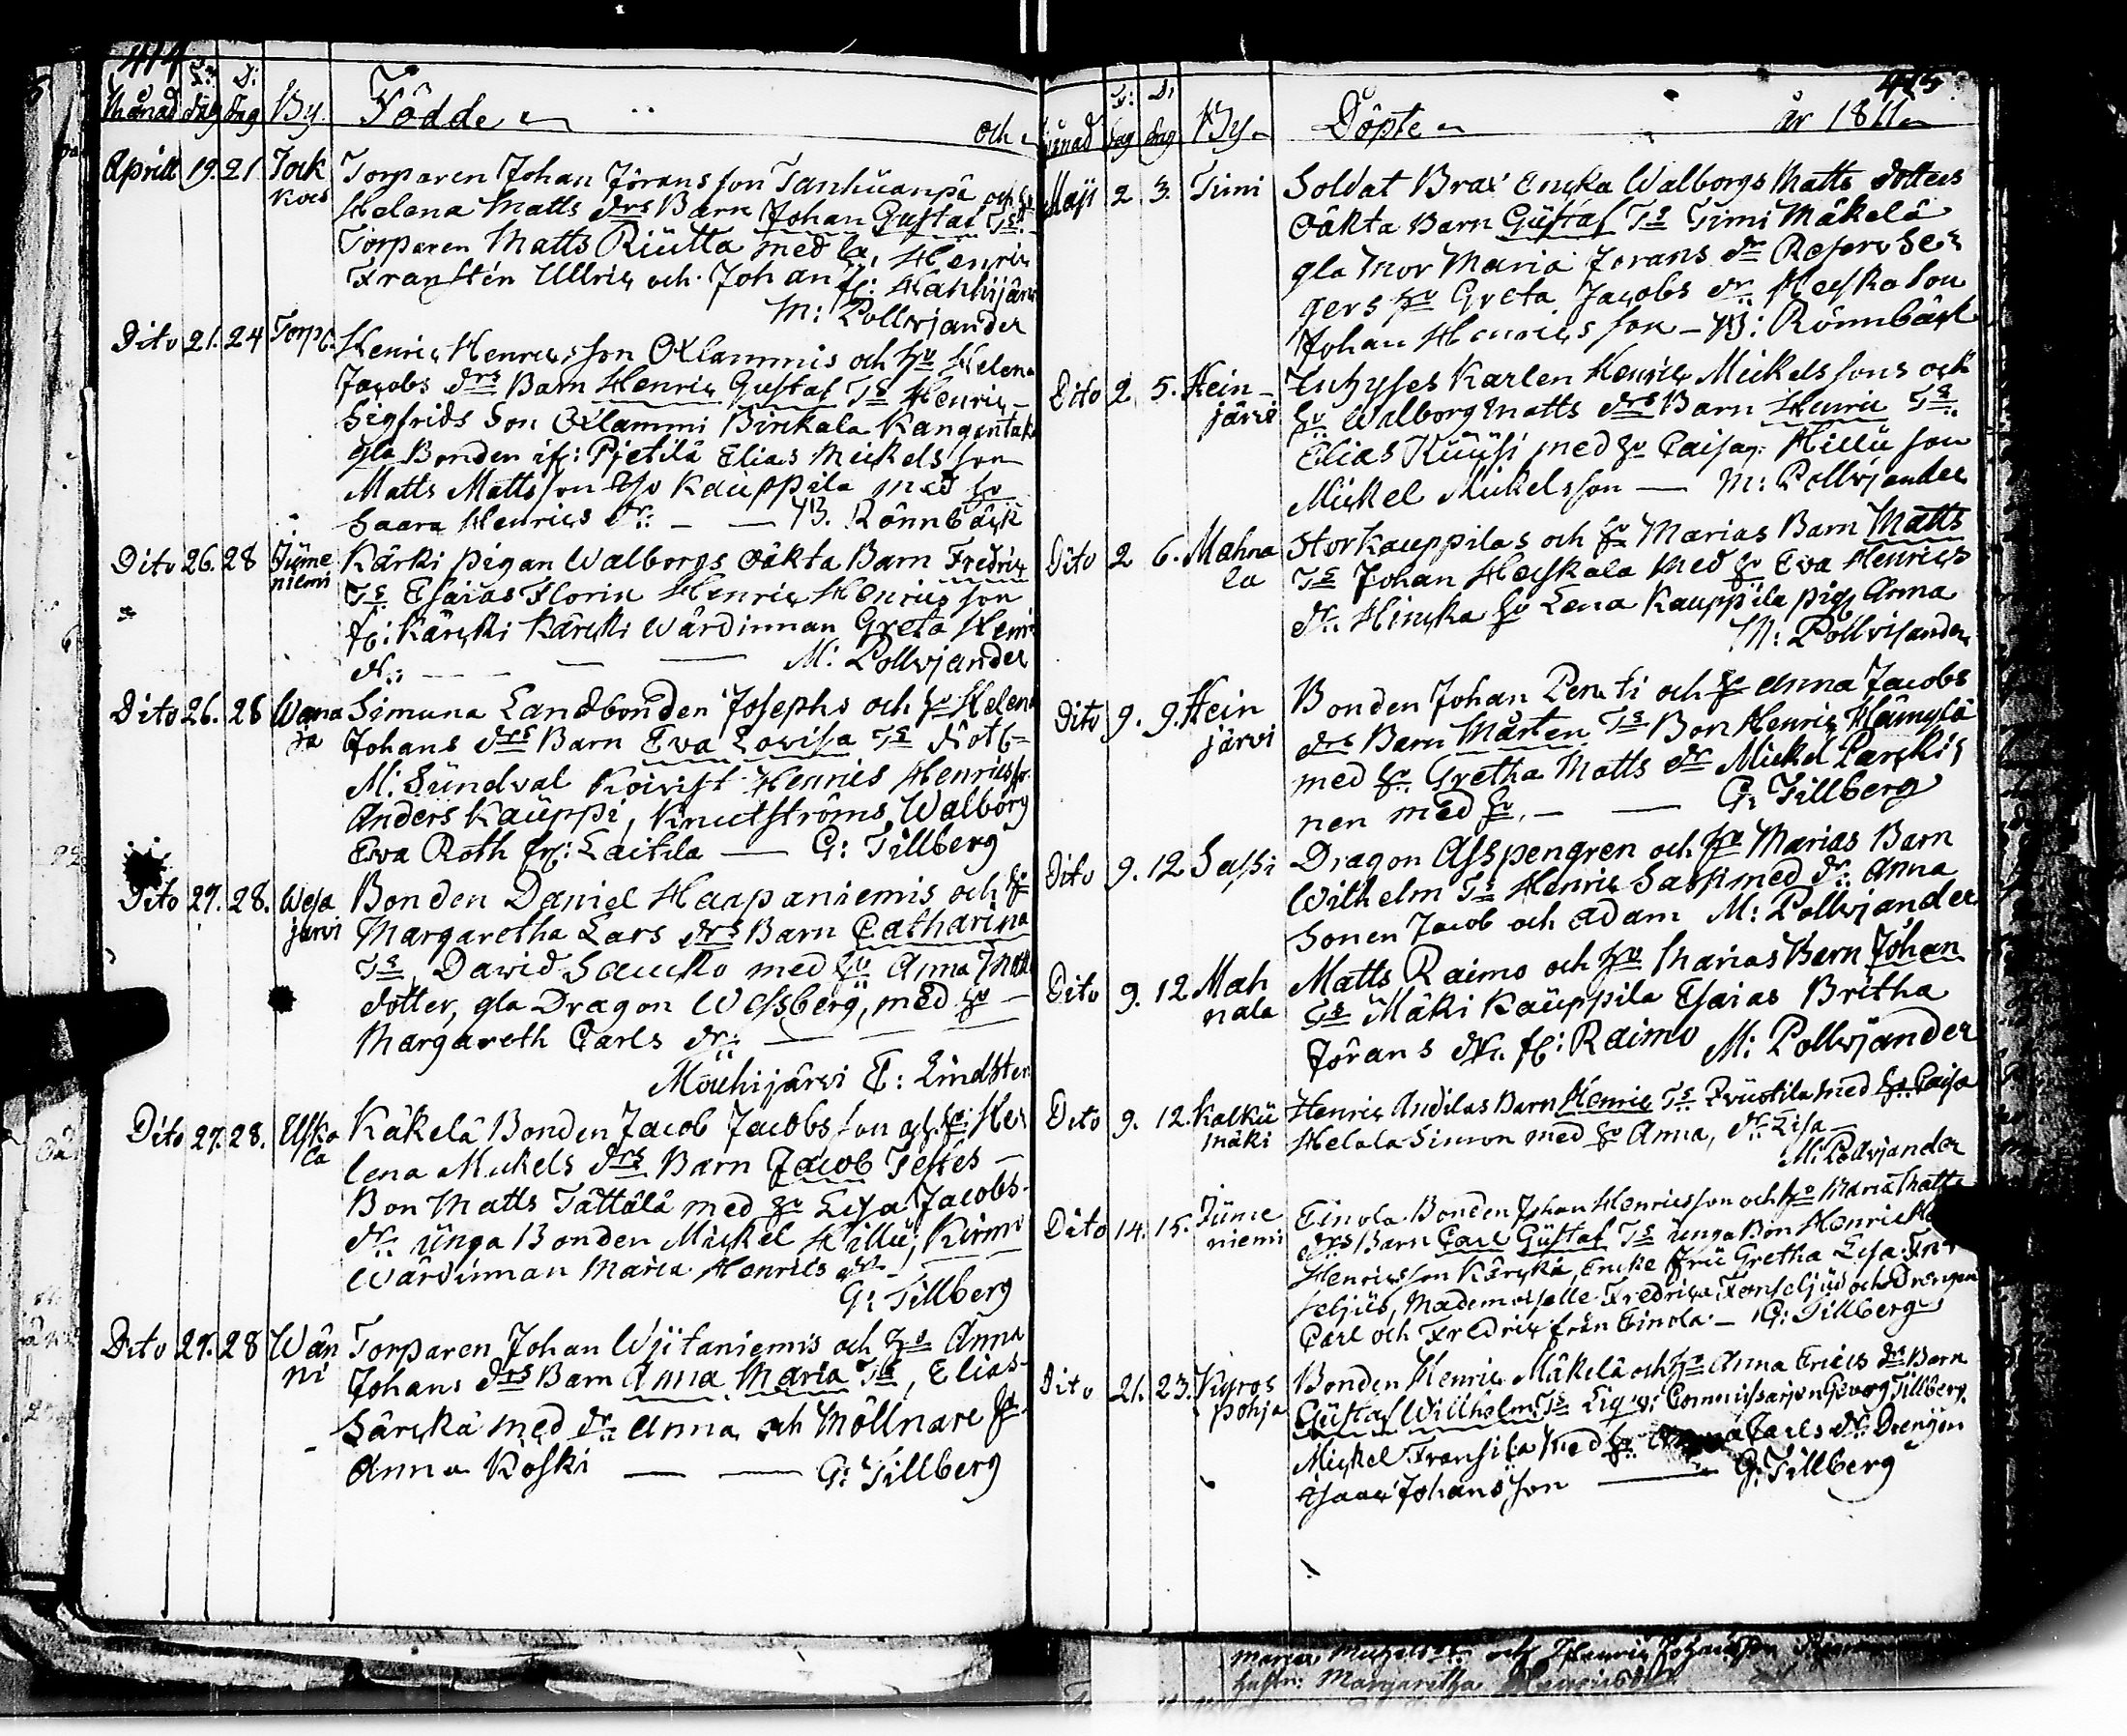 414
Månad F: dag D: dag By. Födde och
Aprill 19. 21 Jock kois Torparen Johan Jöransson Tanhuanpä och hu
Helena Matts drs Barn Johan Gustaf Ts:
Torparen Matts Riutta med hu, Henric
Franstén Ullric och Johan fr: Hanhijärvi
M: Pollviander
Dito 21. 24 Torp b. Henric Henricsson Oxlammis och hu Helena
Jacobs drs Barn Henric Gustaf Ts Henric
Sigfrids Son Oxlammi Birkala Kangentaka
gla Bonden ifr: Pietilä Elias Mickels son
Matts Mattsson Kauppila med hu
Saara Henrics dr: — — B. Rönnbäck
Dito 26. 28 Jumeniemi Kärki pigan Walborgs oäkta Barn Fredric
Ts Esaias Florin Henric Henrics son
fr: Kärcki Kärcki Wärdinnan Greta Henr
dr: — — — M: Pollviander
Dito 26. 28 Wanaja Simuna Landbonden Josephs och hu Helena
Johans drs Barn Eva Lovisa Ts Rotb
M: Sundval Koivist Henric Henricsson
Anders Kauppi, Knutströms Walborg
Eva Roth fr: Laitila — G: Tillberg
Dito 27. 28. Wesajärvi Bonden Daniel Haapaniemis och hu
Margaretha Lars drs Barn Catharina
Ts, David Saucko med hu Anna Matts
dotter, gla Dragon Wessberg, med hu —
Margareth Carls dr: — —
Mouhijärvi E: Lindsten
Dito 27. 28. Elskola Käkelä Bonden Jacob Jacobsson och hu He
lena Mickels drs Barn Jacob Testes —
Bon Matts Tättälä med hu Lisa Jacobs
dr: unga Bonden Mickel Hillu, Kirmu
Wärdinnan Maria Henrics dr
G: Tillberg
Dito 27. 28 Wänni Torparen Johan Wiitaniemis och hu Anna
Johans drs Barn Anna Maria Ts, Elias
Särckä med dr: Anna, och Möllnare hu
Anna Koski — — G: Tillberg
415
Månad F: dag D: dag By Döpte år 1811
Maji 2 3. Timi Soldat Brax Encka Walborgs Matts dotters
Oäkta Barn Gustaf Ts Timi Mäkelä
gla mor Maria Jörans dr Reserv Se
gers hu Greta Jacobs dr Heiska Son
Johan Henrics son — B: Rönnbäck
Dito 2 5. Heinjärvi Inhyses Karlen Henric Mickelssons och
hu Walborg Matts drs Barn Henric Ts
Elias Kuusi med hu Caisa, Hillu son
Mickel Mickelsson — M: Pollviander
Dito 2 6. Mahnala Storkauppilas och hu Marias Barn Matts
Ts Johan Heiskala med hu Eva Henrics
dr: Hincka hu Lena Kauppila pig Anna
M: Pollviander
Dito 9. 9. Heinjärvi Bonden Johan Pentti och hu Anna Jacobs
drs Barn Mårten Ts Bon Henric Hämylä
med hu Gretha Matts dr Mickel Parcki
nen med hu, — — G: Tillberg
Dito 9. 12 Sassi Dragon Asspengren och hu Marias Barn
Wilhelm Ts Henric Sassi med dr: Anna
Sonen Jacob och Adam M: Pollviander
Dito 9. 12 Mahnala Matts Raimo och hu Marias Barn Johan
Ts Mäki Kauppila Esaias Britha
Jörans dr: fr: Raimo M: Pollviander
Dito 9. 12. Kalkumäki Henric Andilas Barn Henric Ts med hu Caisa
Helala Simon med hu Anna, dr: Lisa —
M: Pollviander
Dito 14. 15. Jumeniemi Einola Bonden Johan Henricsson och hu Maria Matts
drs Barn Carl Gustaf Ts unga Bon Henric
Henricsson Kärckä, Encke Fru Gretha Lisa
Mademoiselle Fredrica och Drengen
Carl och Fredric från Einola — G: Tillberg
Dito 21. 23. Kyröspohja Bonden Henric Mäkelä och hu Anna Erics drs Barn
Gustaf Willhelm Ts Commissarien Georg Tillberg
Mickel Fransila med hu Carls dr: Drengen
Isaac Johansson — G: Tillberg